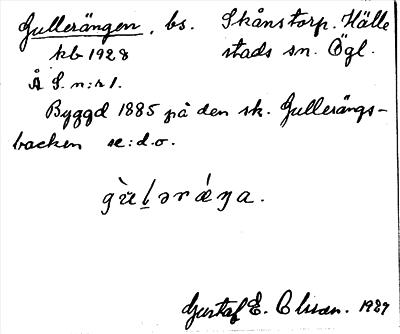 Gullerängen, bs. Skånstorp. Hälle
kb 1928 stads sn. Ögl.
Å S. n:r 1.
Byggd 1885 på den sk. Gullerängs-
backen se: d.o.
gù̈lərǽŋa.
Gustaf E. Olsson. 1929